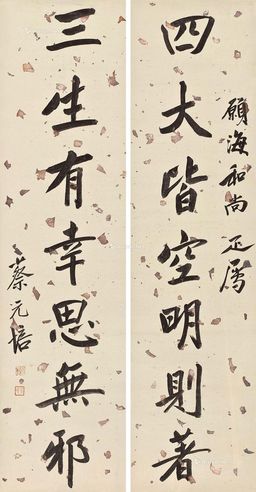 四大皆空明則著
願海和尚正屬
三生有幸思無邪
蔡元培